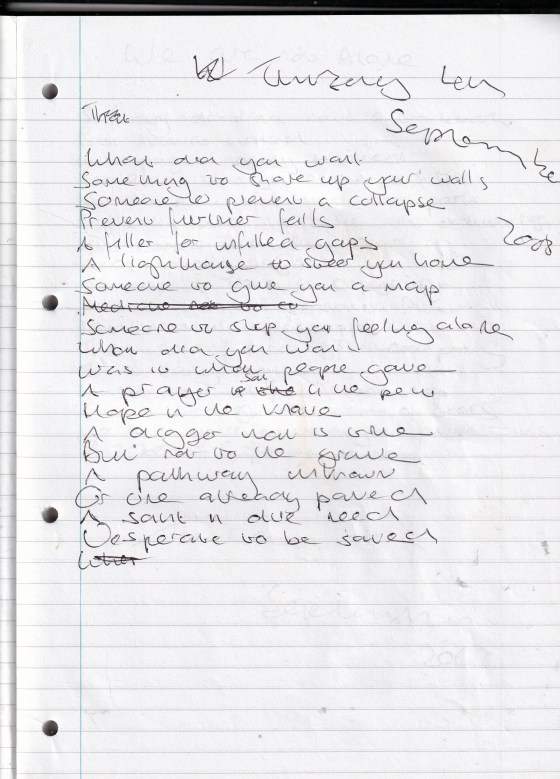 September
2008
What did you want
Something to shore up your walls
Someone to prevent a collapse
Prevent further falls
A filler for unfilled gaps
A lighthouse to steer you home
Someone to give you a map
Medicine not to
Someone to stop you feeling alone
What did you want
Was it what people gave
A prayer sat in the pew
Hope in the knave
A digger that is true
But not to the grave
A pathway unknown
Or one already paved
A saint in dire need
Desperate to be saved